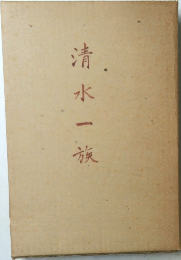 清水一族